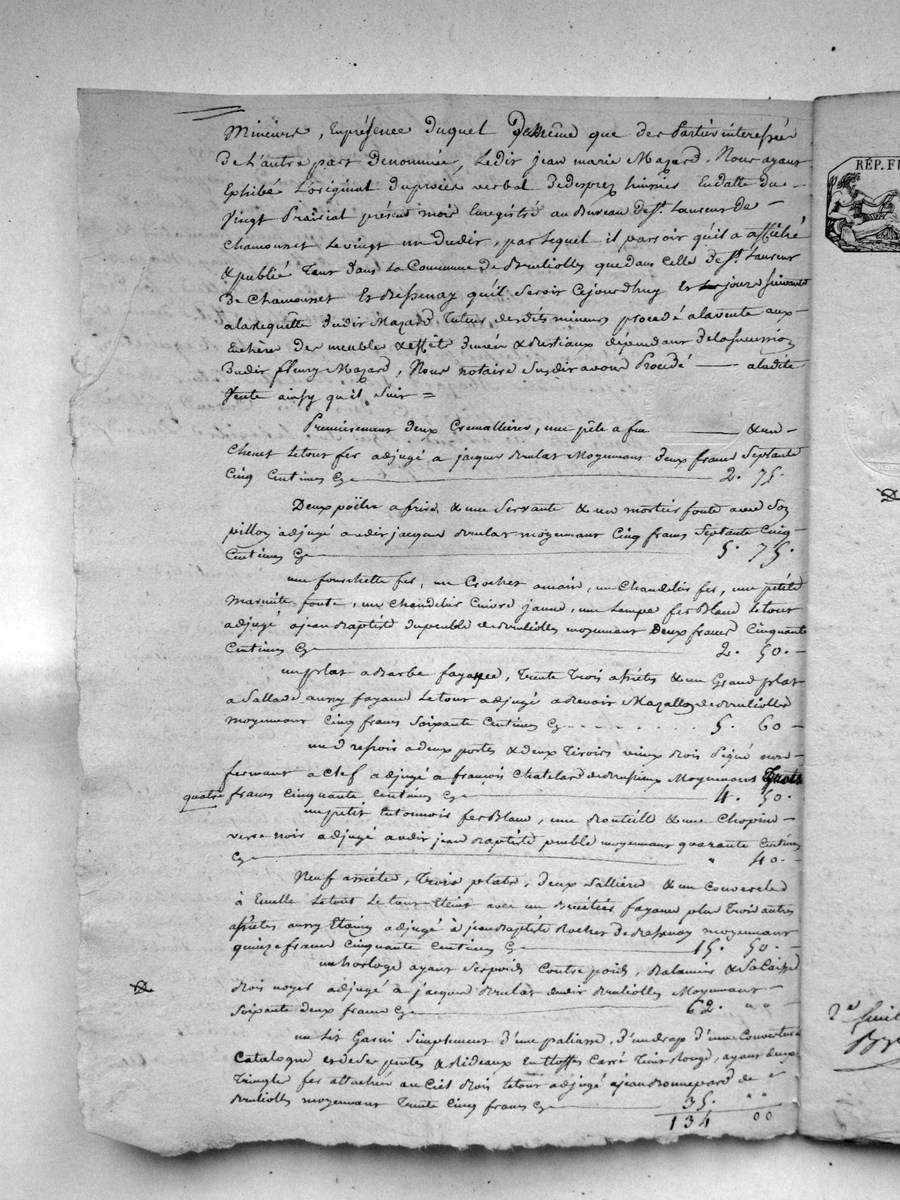 Mineurs, En présence Duquel De même que des Parties interessées
De L'autre part Denommée, Ledit jean marie Mazard, Nous ayant
Exhibé L'original Du procès verbal De desprez huissier En datte du
Vingt Prairial présent mois Enregistré au Bureau de St. Laurent De
Chamousset Le vingt un Dudit, par Lequel il paroit qu'il a affiché
& publié Tant Dans La Commune de Brullioles que dans Celle De St. Laurent
De Chamousset Et Bessenay qu'il Seroit Cejourd'huy Et jours Suivants
a la requette Dudit Mazard Tuteur desdits mineurs procedé a la vente aux
Enchère des meubles & effêt Danrée & Bestiaux dépendant De la Succession
Dudit fleury Mazard, Nous notaire Susdit avons Procédé — a ladite
Vente ainsy qu'il Suit =
Premièrement Deux Cremallieres, une pèle a feu — & un
Chenet Le tout fer adjugé a jacques Brulas Moyennant Deux francs Septante
Cinq Centimes Cy — 2. 75.
Deux poëlles a frire & une Servante & un mortier fonte avec Son
pillon adjugé audit jacques Brulas moyennant Cinq francs Septante Cinq
Centimes Cy — 5. 75.
une fourchette fer, un Crochet a main, un Chandelier fer, une petite
Marmite fonte, un Chandelier Cuivre jaune, une Lampe fer Blanc Le tout
adjugé a jean Baptiste Dupeuble de Brullioles moyennant Deux francs Cinquante
Centimes Cy — 2. 50. —
un plat a Barbe fayance, Trente Trois assiétes & un Grand plat
a Sallade aussy fayance Le tout adjugé a Benoit Mazallon de Brullioles
moyennant Cinq francs Soixante Centimes Cy - - - - - 5. 60 —
un Dressoir a deux portes & deux Tiroirs vieux Bois Piqué non
fermant a Clef adjugé a françois Chatelard de Brussieux Moyennant Trois
quatre francs Cinquante Centimes Cy — 4. 50.
un petit entonnoir fer Blanc, une Bouteille & une Chopine
verre noir adjugé audit jean Baptiste peuble moyennant quarante Centimes
Cy — " 40. —
Neuf assiétes, Trois plats, Deux Sallieres & un Couvercle
à Ecuelle Le tout Etain avec un Benitier fayance plus Trois autres
assietes aussy Etaing adjugé à jean Baptiste Rocher De Bessenay moyennant
quinze francs Cinquante Centimes Cy — 15. 50. —
un horloge ayant Ses poids Contre poids, Balancier & Sa Caisse
Bois noyer adjugé a jacques Brulas dudit Brullioles Moyennant
Soixante Deux francs Cy — 62. " " —
un Lit Garni Simplement d'une paliasse, d'un drap d'une Couverture
Catalogne et de Ses pentes & Rideaux En Etoffes Carré Teint Rouge, ayant Deux
Tringle fer attachée au Ciel Bois Le tout adjugé a jean Bonnepard de
Brullioles moyennant Trente Cinq francs Cy — 35. " "
134 00
RÉP. F